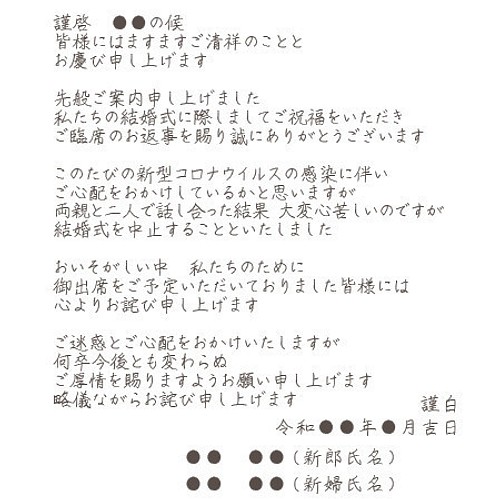 謹啓　●●の候
皆様にはますますご清祥のことと
お慶び申し上げます
先般ご案内申し上げました
私たちの結婚式に際しましてご祝福をいただき
ご臨席のお返事を賜り誠にありがとうございます
このたびの新型コロナウイルスの感染に伴い
ご心配をおかけしているかと思いますが
両親と二人で話し合った結果 大変心苦しいのですが
結婚式を中止することといたしました
おいそがしい中　私たちのために
御出席をご予定いただいておりました皆様には
心よりお詫び申し上げます
ご迷惑とご心配をおかけいたしますが
何卒今後とも変わらぬ
ご厚情を賜りますようお願い申し上げます
略儀ながらお詫び申し上げます
謹白
令和●●年●月吉日
●●　●●（新郎氏名）
●●　●●（新婦氏名）